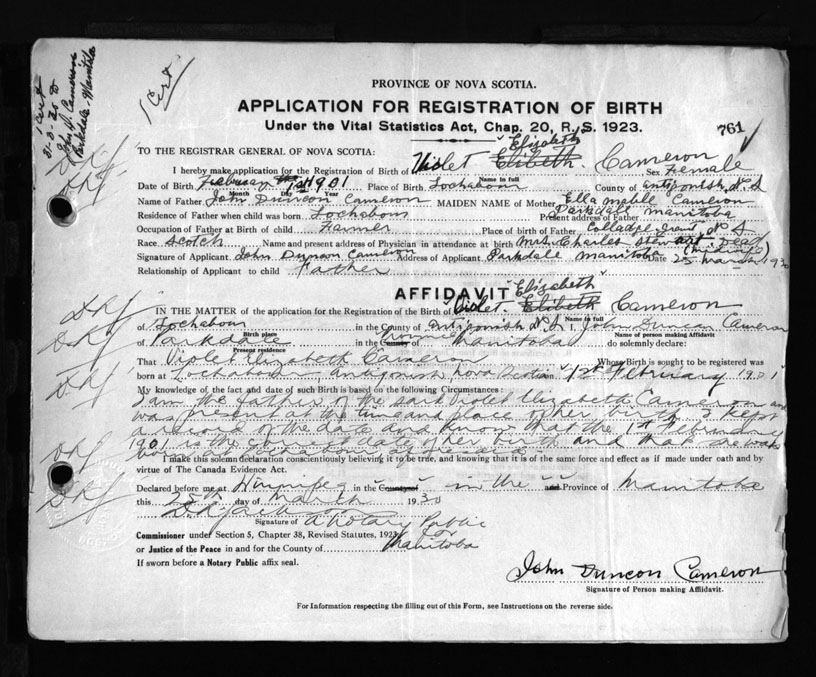 1 Cert
31-3-30 to
John D. Cameron
Parkdale - Manitoba
1 Cert
PROVINCE OF NOVA SCOTIA.
APPLICATION FOR REGISTRATION OF BIRTH
Under the Vital Statistics Act, Chap. 20, R. S. 1923.
761
TO THE REGISTRAR GENERAL OF NOVA SCOTIA:
"Elizabeth"
I hereby make application for the Registration of Birth of Violet Elibeth. Cameron Sex Female
Name in full
Date of Birth February 1st 1901 Place of Birth Lochaboun County of Antigonish N.S
Month Day Year
Name of Father John Duncon Cameron MAIDEN NAME of Mother Ella Mabile Cameron
Residence of Father when child was born Lochaboun Present address of Father Parkdale Manitoba
Occupation of Father at Birth of child Farmer Place of birth of Father N S
Race Scotch Name and present address of Physician in attendance at birth Mrs. Charles Stewart. Dead (Midwife)
Signature of Applicant John Duncon Cameron Address of Applicant Parkdale Manitoba Date 25 March 1930
Relationship of Applicant to child Father
AFFIDAVIT
"Elizabeth"
IN THE MATTER of the application for the Registration of the Birth of Violet. Elibeth Cameron
Name in full
of Lochaboun in the County of Antigonish N.S I, John Duncan Cameron
Birth place Name of person making Affidavit
of Parkdale in the County of Manitoba do solemnly declare:
Present residence
That Violet Elizabeth Cameron Whose Birth is sought to be registered was
born at Lochaboun, Antigonish, Nova Scotia 1st February 1901
My knowledge of the fact and date of such Birth is based on the following Circumstances:
I am the father of the said Violet Elizabeth Cameron and
was present at the time and place of her birth I kept
a record of the date and know that the 1st February
1901 is the correct date of her birth and that she was
born at Lochaboun aforesaid
I make this solemn declaration conscientiously believing it to be true, and knowing that it is of the same force and effect as if made under oath and by
virtue of The Canada Evidence Act.
Declared before me at Winnipeg in the County of in the and Province of Manitoba
this 25th day of March 1930
Signature of A Notary Public
Commissioner under Section 5, Chapter 38, Revised Statutes, 1923, for
or Justice of the Peace in and for the County of Manitoba
If sworn before a Notary Public affix seal.
John Duncon Cameron
Signature of Person making Affidavit.
For Information respecting the filling out of this Form, see Instructions on the reverse side.